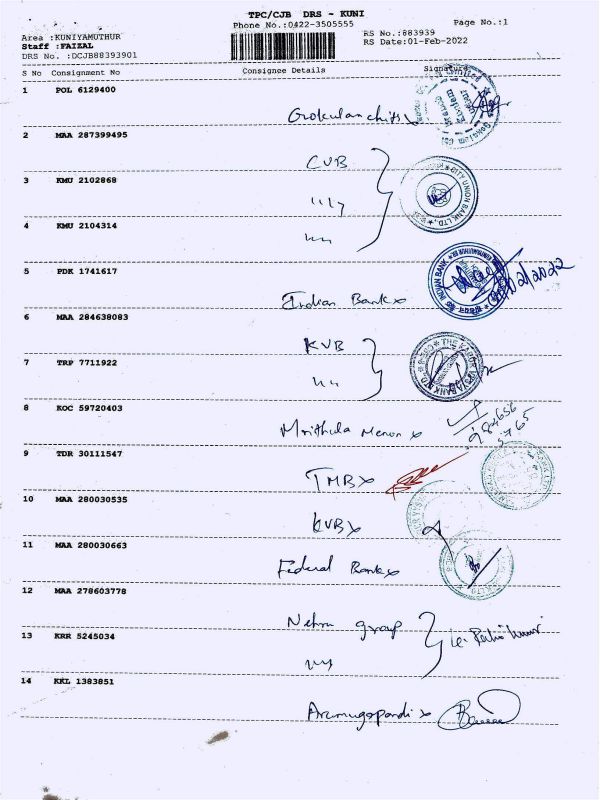 TPC/CJB DRS - KUNI
Phone No.:0422-3505555
Page No.:1
Area :KUNIYAMUTHUR
Staff :FAIZAL
DRS No. :DCJB88393901
RS No.:883939
RS Date:01-Feb-2022
S No Consignment No Consignee Details Signature
1 POL 6129400
Gokulam chits
2 MAA 287399495
CUB
3 KMU 2102868
CITY UNION BANK LTD.
4 KMU 2104314
5 PDK 1741617
Indian Bank
INDIAN BANK
6 MAA 284638083
KVB
THE KARUR VYSYA BANK LTD.
7 TRP 7711922
8 KOC 59720403
Mrithula Menon
9 TDR 30111547
TMB
10 MAA 280030535
KVB
11 MAA 280030663
Federal Bank
12 MAA 278603778
Nehru group
13 KRR 5245034
14 KKL 1383851
Arumugapandi